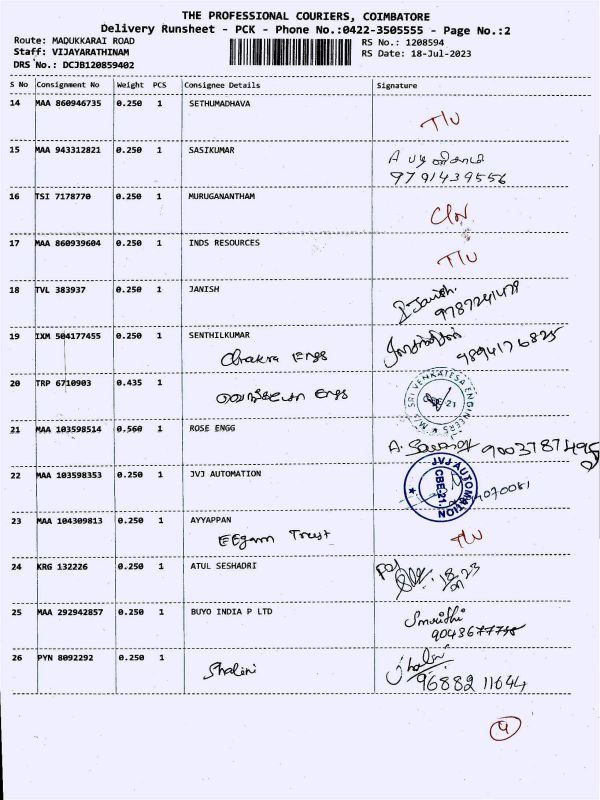 THE PROFESSIONAL COURIERS, COIMBATORE
Delivery Runsheet - PCK - Phone No.:0422-3505555 - Page No.:2
Route: MADUKKARAI ROAD
RS No.: 1208594
Staff: VIJAYARATHINAM
RS Date: 18-Jul-2023
DRS No.: DCJB120859402
S No Consignment No Weight PCS Consignee Details Signature
14 MAA 860946735 0.250 1 SETHUMADHAVA
T/U
15 MAA 943312821 0.250 1 SASIKUMAR
9791439556
16 TSI 7178770 0.250 1 MURUGANANTHAM
17 MAA 860939604 0.250 1 INDS RESOURCES
T/U
18 TVL 383937 0.250 1 JANISH
Janish.
9787241479
19 IXM 504177455 0.250 1 SENTHILKUMAR
Chakra Engs
9894176825
20 TRP 6710903 0.435 1
Engs
M/s SRI VENKATESA ENGINEERS
21 MAA 103598514 0.560 1 ROSE ENGG
9003787495
22 MAA 103598353 0.250 1 JVJ AUTOMATION
JVJ AUTOMATION
CBE-21.
23 MAA 104309813 0.250 1 AYYAPPAN
EEgam Trust
T/U
24 KRG 132226 0.250 1 ATUL SESHADRI
25 MAA 292942857 0.250 1 BUYO INDIA P LTD
Smridhi
26 PYN 8092292 0.250 1
Shalini
9688211644
4